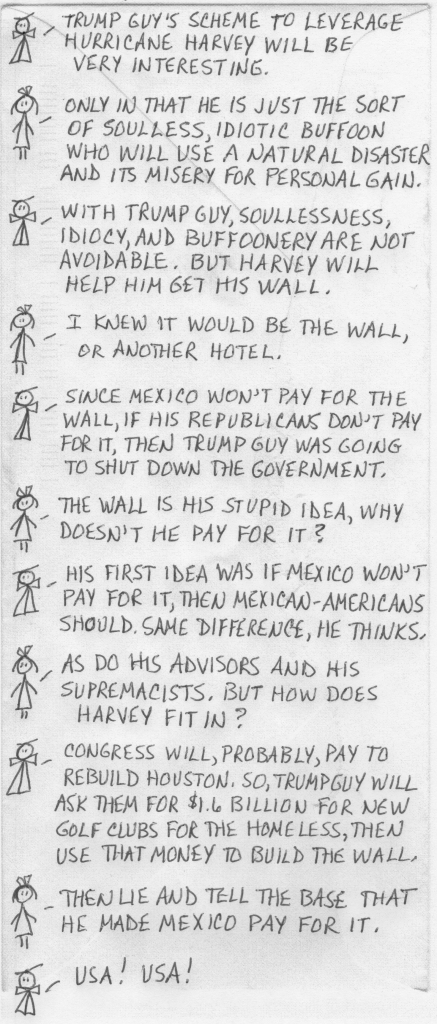 TRUMP GUY'S SCHEME TO LEVERAGE
HURRICANE HARVEY WILL BE
VERY INTERESTING.
ONLY IN THAT HE IS JUST THE SORT
OF SOULLESS, IDIOTIC BUFFOON
WHO WILL USE A NATURAL DISASTER
AND ITS MISERY FOR PERSONAL GAIN.
WITH TRUMP GUY, SOULLESSNESS,
IDIOCY, AND BUFFOONERY ARE NOT
AVOIDABLE. BUT HARVEY WILL
HELP HIM GET HIS WALL.
I KNEW IT WOULD BE THE WALL,
OR ANOTHER HOTEL.
SINCE MEXICO WON'T PAY FOR THE
WALL, IF HIS REPUBLICANS DON'T PAY
FOR IT, THEN TRUMP GUY WAS GOING
TO SHUT DOWN THE GOVERNMENT.
THE WALL IS HIS STUPID IDEA, WHY
DOESN'T HE PAY FOR IT?
HIS FIRST IDEA WAS IF MEXICO WON'T
PAY FOR IT, THEN MEXICAN-AMERICANS
SHOULD. SAME DIFFERENCE, HE THINKS.
AS DO HIS ADVISORS AND HIS
SUPREMACISTS. BUT HOW DOES
HARVEY FIT IN?
CONGRESS WILL, PROBABLY, PAY TO
REBUILD HOUSTON. SO, TRUMP GUY WILL
ASK THEM FOR $1.6 BILLION FOR NEW
GOLF CLUBS FOR THE HOMELESS, THEN
USE THAT MONEY TO BUILD THE WALL.
THEN LIE AND TELL THE BASE THAT
HE MADE MEXICO PAY FOR IT.
USA! USA!